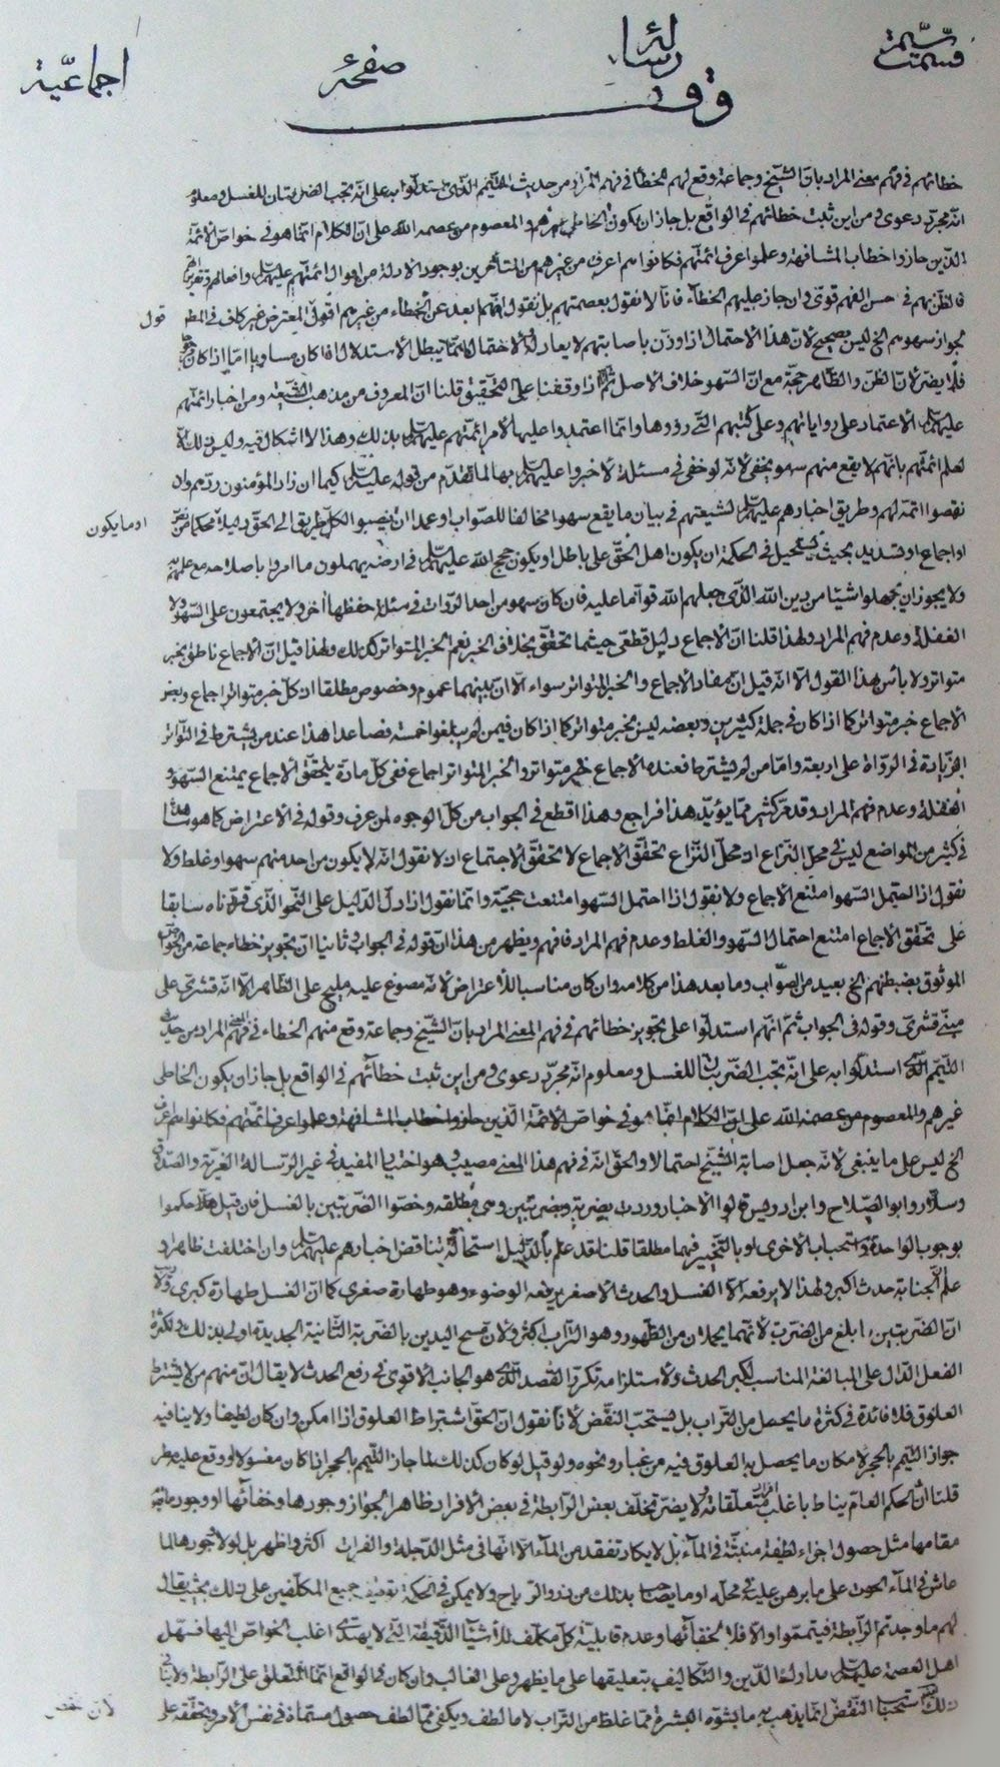 قسمت سيمة رسالة صفحهٔ اجماعيّة
وقف
خطائهم في فهم معنى المراد بان الشيخ وجماعة وقع لهم الخطأ في فهم المراد من حديث التيمم الذى استدلوا به على انّه تجب الضربتان للغسل ومعلوم
انّه مجرّد دعوى فمن اين ثبت خطائهم في الواقع بل جاز ان يكون الخاطى غيرهم والمعصوم من عصمه الله على انّ الكلام انّما هو في خواصّ الائمّة
الذين حازوا خطاب المشافهة وعلموا عرف ائمتهم فكانوا هم اعرف من غيرهم من المتأخرين بوجود الادلة من اقوال ائمتهم عليهم السلام وافعالهم وتقريراتهم
فالظن بهم في حسن الفهم قوىّ وان جاز عليهم الخطأ فانّا لا نقول بعصمتهم بل نقول انّهم ابعد عن الخطاء من غيرهم اقول المعترض غير كاف في المط
قول
تجويز سهوهم الخ ليس بصحيح لانّ هذا الاحتمال اذا وزن باصابتهم لا يعادله والاحتمال انّما يبطل الاستدلال اذا كان مساويا امّا اذا كان مرجوحا
فلا يضرّ لانّ الظنّ والظاهر حجّة مع انّ السهو خلاف الاصل ثم اذا وقفنا على التحقيق قلنا انّ المعروف من مذهب الشيعة ومن اخبار ائمتهم
عليهم السلام الاعتماد على رواياتهم وعلى كتبهم التى رووها وانّما اعتمدوا عليها لامر ائمّتهم عليهم السلام بذلك وهذا لا اشكال فيه وليس ذلك الّا
لعلم ائمتهم بانّهم لا يقع منهم سهو يخفى لانّه لو خفى في مسئلة لاخبروا عليهم السلام بها لما تقدم من قوله عليه السلام كيما ان زاد المؤمنون ردّهم وان
نقصوا اتمّه لهم وطريق اخبارهم عليهم السلام لشيعتهم في بيان ما يقع سهوا مخالفا للصّواب او عمدا ان ينصبوا لكلّ طريق الى الحقّ دليلا محكما من
او ما يكون
او اجماع او تسديد بحيث يستحيل في الحكمة ان يكون اهل الحقّ على باطل او يكون حجج الله عليهم السلام في ارضه يهملون ما امروا باصلاحه مع علمهم به
ولا يجوز ان يجهلوا شيئا من دين الله الذى جعلهم الله قوّاما عليه فان كان سهو من احد الروات في مسئلة حفظها آخر ولا يجتمعون على السّهو ولا
الغفلة وعدم فهم المراد ولهذا قلنا انّ الاجماع دليل قطعى حيثما تحقّق بخلاف الخبر نعم الخبر المتواتر كذلك ولهذا قيل انّ الاجماع ناطق بخبر
متواتر ولا بأس بهذا القول الّا انّه قيل انّ مفاد الاجماع والخبر المتواتر سواء الّا انّ بينهما عموم وخصوص مطلقا انّ كلّ خبر متواتر اجماع وبعض
الاجماع خبر متواتر كما اذا كان في جملة كثيرين وبعضه ليس بخبر متواتر كما اذا كان فيمن لم يبلغوا خمسة فصاعدا هذا عند من يشترط في التواتر
الزيادة في الرّواة على اربعة وامّا من لم يشترط فعنده الاجماع خبر متواتر والخبر المتواتر اجماع ففى كلّ مادة يتحقّق الاجماع يمتنع السّهو و
الغفلة وعدم فهم المراد وقد مرّ كثير ممّا يؤيّد هذا فراجع وهذا اقطع في الجواب من كلّ الوجوه لمن عرف وقوله في الاعتراض كما هو مشاهد
في كثير من المواضع ليس في محلّ النزاع اذ محلّ النزاع تحقّق الاجماع لا تحقّق الاجتماع ان لا نقول انّه لا يكون من احد منهم سهو او غلط ولا
نقول اذا احتمل السّهو امتنع الاجماع ولا نقول اذا احتمل السّهو امتنعت حجيّته وانّما نقول اذا دلّ الدّليل على النّحو الّذى قرّرناه سابقا
على تحقّق الاجماع امتنع احتمال السّهو والغلط وعدم فهم المراد فافهم ويظهر من هذا انّ قوله في الجواب وثانيا انّ تجويز خطاء جماعة من الخواصّ
الموثوق بضبطهم الخ بعيد من الصّواب وما بعد هذا من كلامه وان كان مناسبا للاعتراض لانّه مصوغ عليه مليح على الظاهر الّا انّه قشرىّ على
مبنىّ قشرىّ وقوله في الجواب ثمّ انّهم استدلّوا على تجويز خطائهم في فهم المعنى المراد بانّ الشّيخ وجماعة وقع منهم الخطاء في فهم المعنى المراد من حديث
التيمّم الّذى استدلّوا به على انّه تجب الضّربتان للغسل ومعلوم انّه مجرّد دعوى ومن اين ثبت خطائهم في الواقع بل جاز ان يكون الخاطى
غيرهم والمعصوم من عصمه الله على انّ الكلام انّما هو في خواصّ الائمّة الّذين حازوا خطاب المشافهة وعلموا عرف ائمّتهم فكانوا هم اعرف
الخ ليس على ما ينبغى لانّه جعل اصابة الشّيخ احتمالا والحقّ انّه في فهم هذا المعنى مصيب وهو اختيار المفيد في غير الرّسالة الغريّة والصّدوق
وسلّار وابو الصّلاح وابن ادريس قالوا الاخبار وردت بضربة وبضربتين وهى مطلقة وخصّوا الضّربتين بالغسل فان قيل هلّا حكموا
بوجوب الواحدة واستحباب الاخرى او بالتّخيير فيهما مطلقا قلنا قد علم بالدّليل استحالة تناقض اخبارهم عليهم السلام وان اختلفت ظاهرا و
علم انّ الجنابة حدث اكبر ولهذا لا يرفعه الّا الغسل والحدث الاصغر يرفعه الوضوء وهو طهارة صغرى كما انّ الغسل طهارة كبرى ولا
انّ الضّربتين ابلغ من الضّربة لانّهما يجلدان من الطّهور وهو التّراب اكثر ولانّ مسح اليدين بالضّربة الثّانية الجديدة اولى بذلك ولكثرة
الفعل الدّال على المبالغة المناسب لكبر الحدث ولاستلزامه تكرّر القصد الّذى هو الجانب الاقوى في رفع الحدث لا يقال انّ منهم من لا يشترط
العلوق فلا فائدة في كثرة ما يحصل من التّراب بل يستحبّ النّفض لانّا نقول انّ الحقّ اشتراط العلوق اذا امكن وان كان لطيفا ولا ينافيه
جواز التّيمم بالحجر لامكان ما يحصل به العلوق فيه من غبار ونحوه ولو قيل لو كان كذلك لما جاز التّيمم بالحجر اذا كان مغسولا او وقع عليه مطر
قلنا انّ الحكم العامّ يناط باغلب افراد متعلّقاته ولا يضرّ تخلّف بعض الرّابطة في بعض الافراد ظاهر الجواز وجودها وخفائها او وجود ما يقوم
مقامها مثل حصول اجزاء لطيفة منبثّة في الماء بل لا يكاد تفقد من الماء الّا انّها في مثل الدّجلة والفرات اكثر واظهر بل لولا وجودها لما
عاش في الماء الحوت على ما برهن عليه في محلّه او ما يصاب بذلك من ذرو الرّياح ولا يمكن في الحكمة توقيف جميع المكلّفين على ذلك بحيث يقال
لهم ما وجدتم الرّابطة فيتممّوا والّا فلا لخفائها وعدم قابليّة كلّ مكلّف للاشياء الدّقيقة الّتى لا يهتدى اغلب الخواصّ اليها فسهّل
اهل العصمة عليهم السلام مداولة الدّين والتّكاليف بتعليقها على ما يظهر وعلى الغالب وان كان في الواقع انّما المتعلّق على الرّابطة ولا ينافى
ذلك استحباب النّفض انّما يذهب به ما يشوّه البشرة ممّا غلظ من التراب لا ما لطف ويكفى ممّا لطف حصول مسمّاه في نفس الامر وتحقّقه على
لانّ